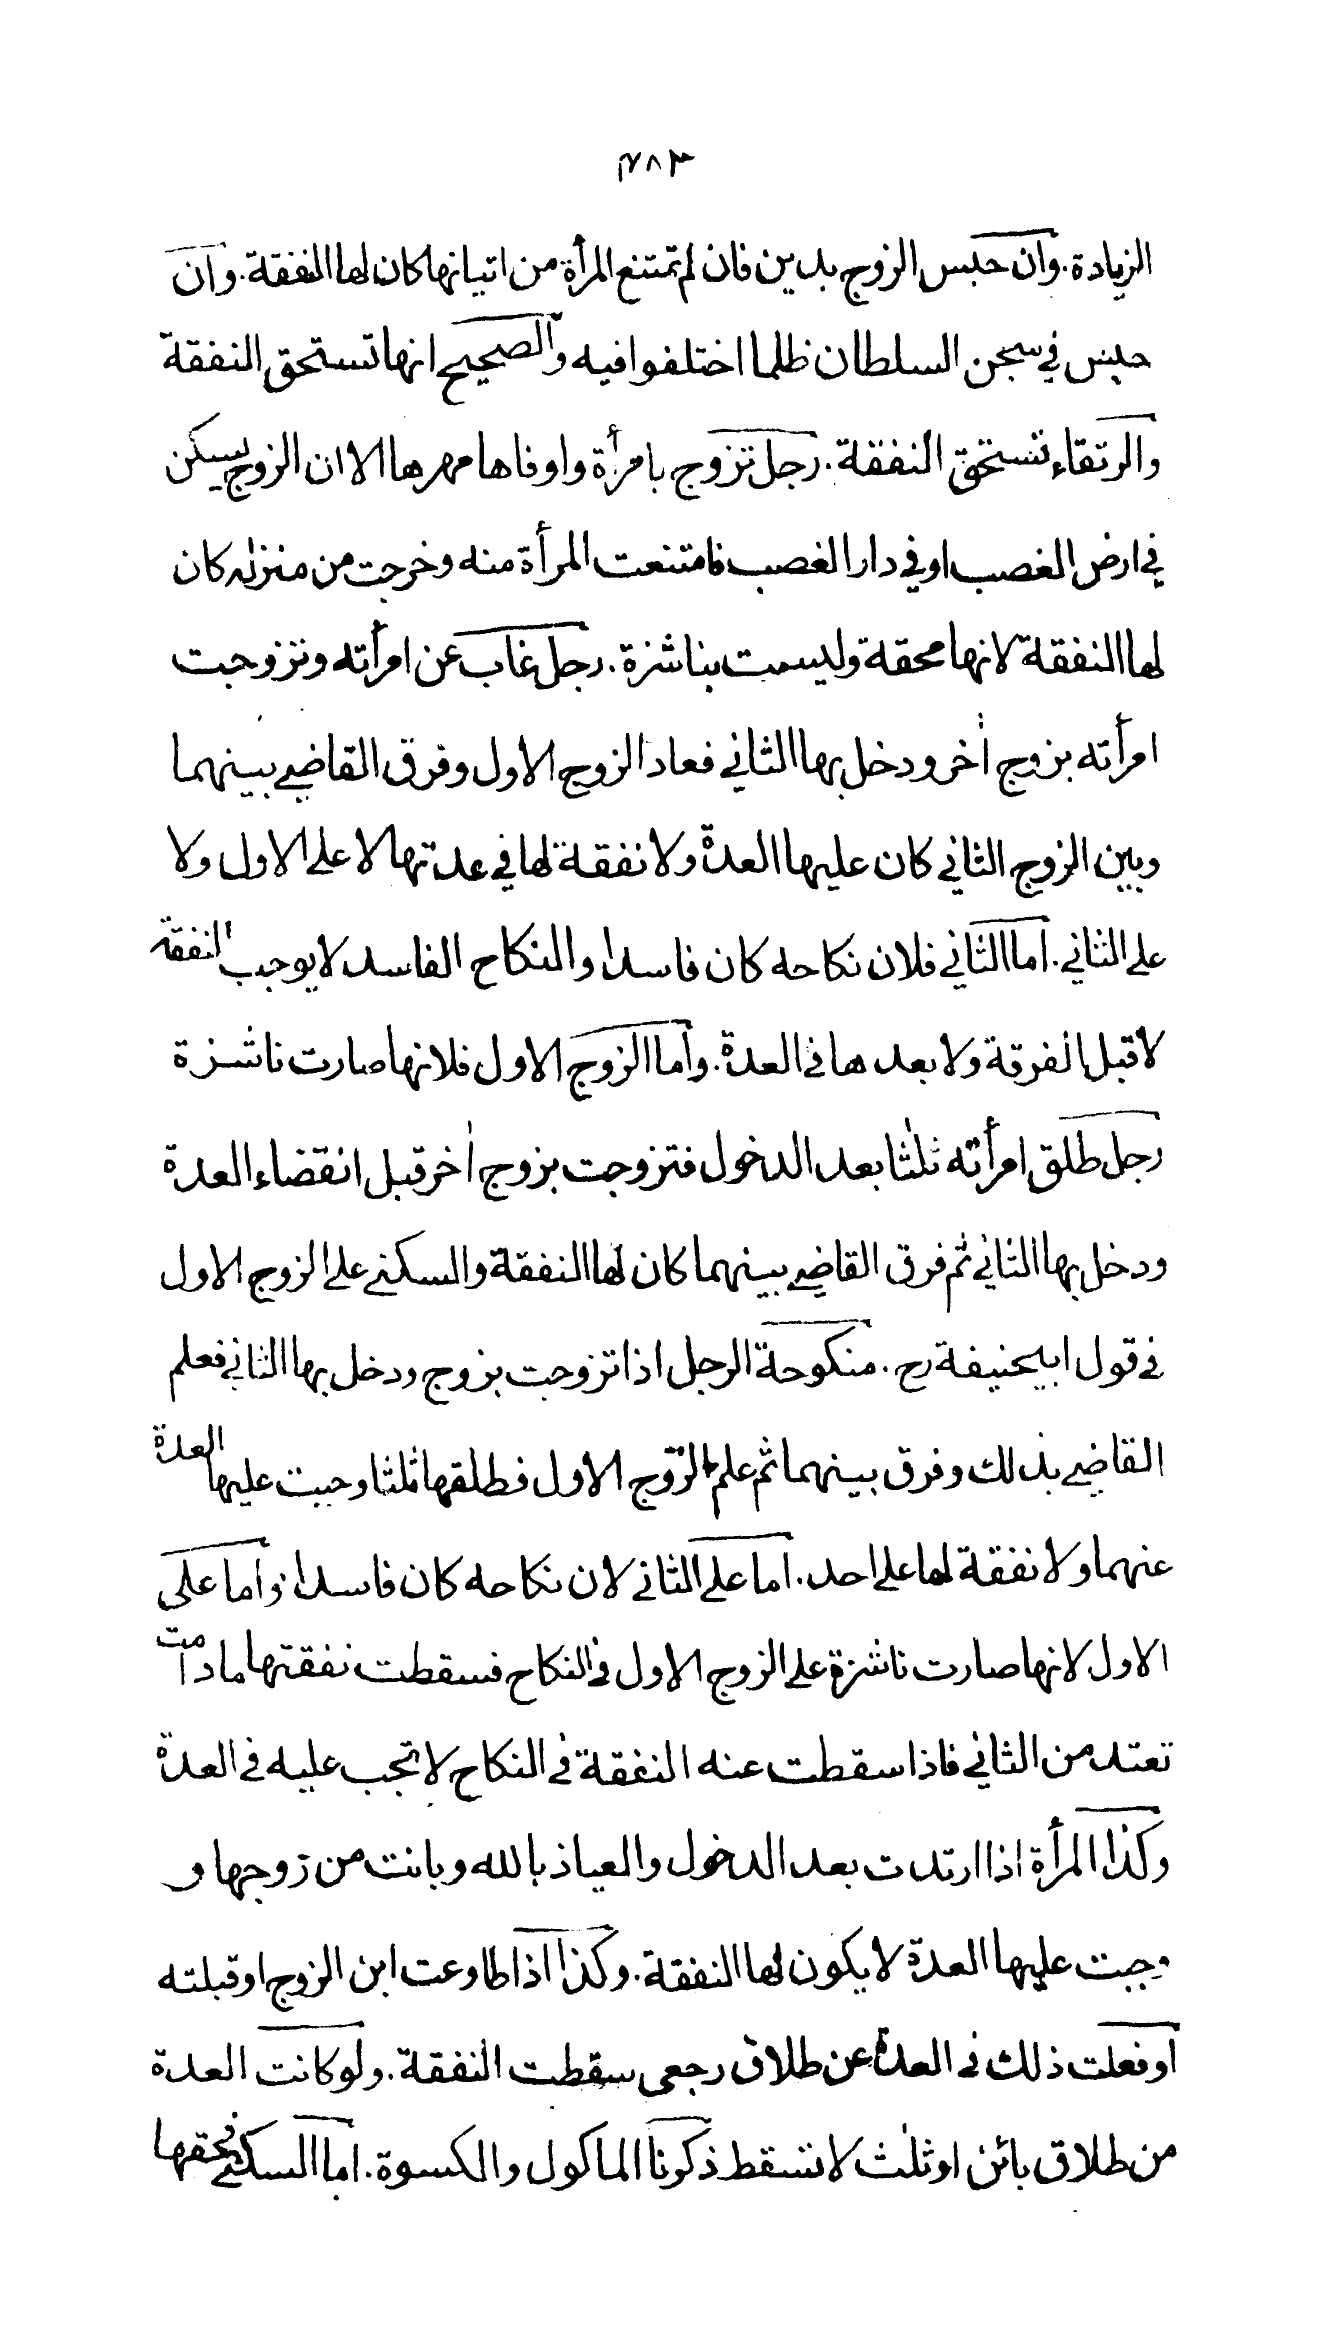 ٣٨٣
الزيادة. وان حبس الزوج بدين فان لم تمتنع المرأة من اتيانها كان لها النفقة. وان
حبس في سجن السلطان ظلما اختلفوا فيه والصحيح انها تستحق النفقة
والرتقاء تستحق النفقة. رجل تزوج بامرأة واوفاها مهرها الا ان الزوج يسكن
في ارض الغصب او في دار الغصب فامتنعت المرأة منه وخرجت من منزله كان
لها النفقة لانها محقة وليست بناشزة. رجل غاب عن امرأته وتزوجت
امرأته بزوج أخر ودخل بها الثاني فعاد الزوج الاول وفرق القاضي بينهما
وبين الزوج الثاني كان عليها العدة ولا نفقة لها في عدتها لا على الاول ولا
على الثاني. اما الثاني فلان نكاحه كان فاسدا والنكاح الفاسد لا يوجب النفقة
لا قبل الفرقة ولا بعدها في العدة. واما الزوج الاول فلانها صارت ناشزة
رجل طلق امرأته ثلثا بعد الدخول فتزوجت بزوج أخر قبل انقضاء العدة
ودخل بها الثاني ثم فرق القاضي بينهما كان لها النفقة والسكنى على الزوج الاول
في قول ابيحنيفة رح. منكوحة الرجل اذا تزوجت بزوج ودخل بها الثاني فعلم
القاضي بذلك وفرق بينهما ثم علم الزوج الاول فطلقها ثلثا وجبت عليها العدة
عنهما ولا نفقة لها على احد. اما على الثاني لان نكاحه كان فاسدا. واما على
الاول لانها صارت ناشزة على الزوج الاول في النكاح فسقطت نفقتها ما دامت
تعتد من الثاني فاذا سقطت عنه النفقة في النكاح لا تجب عليه في العدة
وكذا المرأة اذا ارتدت بعد الدخول والعياذ بالله وبانت من زوجها و
وجبت عليها العدة لا يكون لها النفقة. وكذا اذا طاوعت ابن الزوج او قبلته
او فعلت ذلك في العدة عن طلاق رجعي سقطت النفقة. ولو كانت العدة
من طلاق بائن او ثلث لا تسقط ذكرنا الماكول والكسوة. اما السكنى فحقها